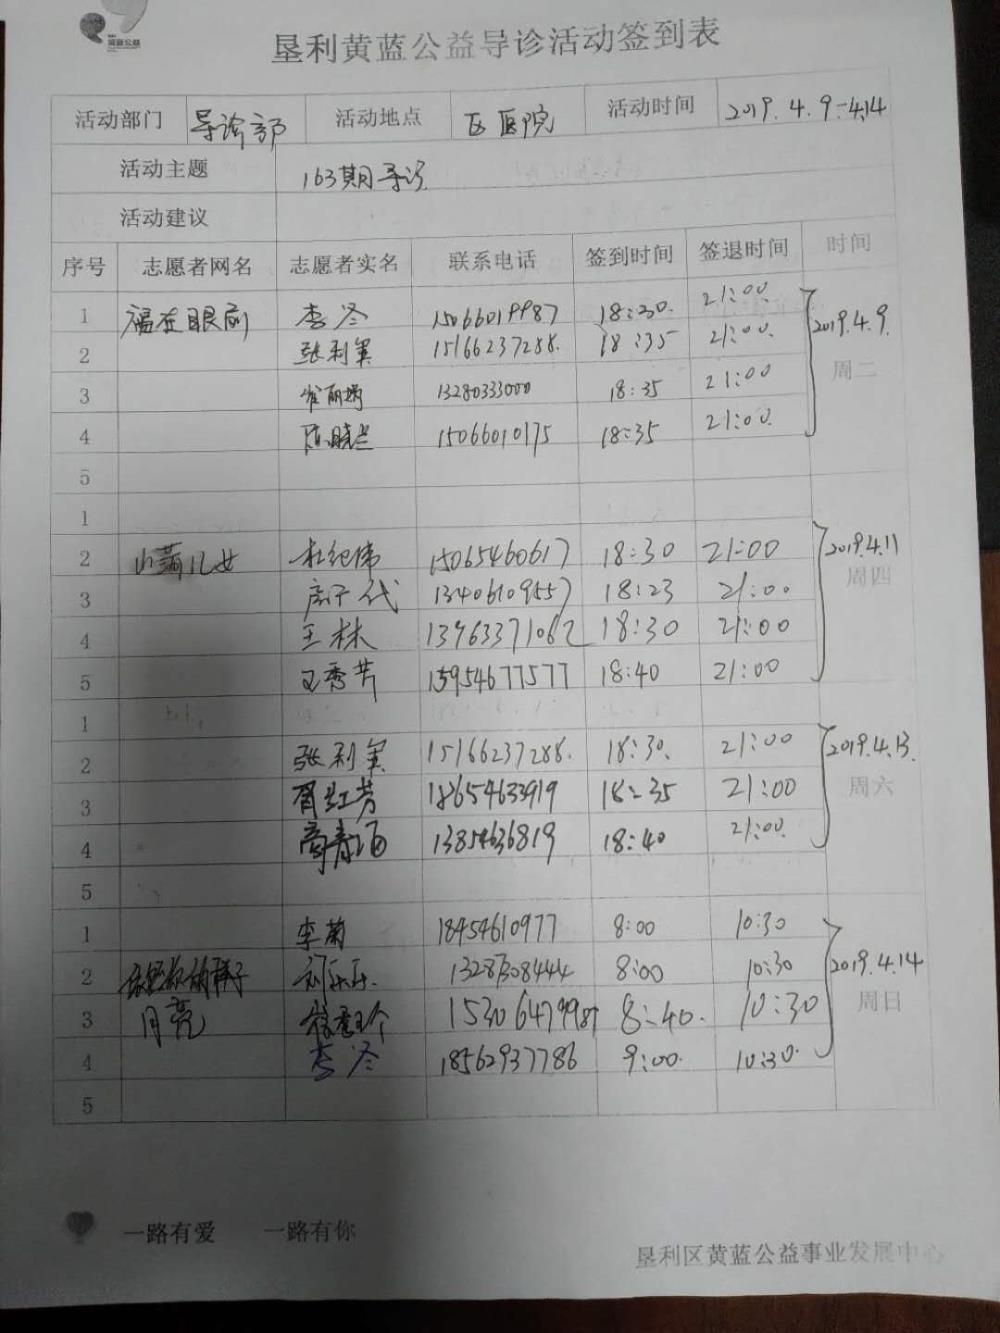 黄蓝公益
垦利黄蓝公益导诊活动签到表
活动部门 导诊部 活动地点 区医院 活动时间 2019.4.9-4.14
活动主题 163期导诊
活动建议
序号 志愿者网名 志愿者实名 联系电话 签到时间 签退时间 时间
1 福在眼前 李冬 15066019987 18:30 21:00 2019.4.9
2 张利军 15166237288 18:35 21:00 周二
3 崔丽娟 13280333000 18:35 21:00
4 陈晓兰 15066010175 18:35 21:00
5
1
2 小满儿女 杜纪伟 15065460617 18:30 21:00 2019.4.11
3 代 13406109557 18:23 21:00 周四
4 王林 13963371062 18:30 21:00
5 王秀芹 15954677577 18:40 21:00
1
2 张利军 15166237288 18:30 21:00 2019.4.13
3 胥红芳 18654633919 18:35 21:00 周六
4 13854636819 18:40 21:00
5
1 李菊 18454610977 8:00 10:30
2 刘乐乐 13287308444 8:00 10:30 2019.4.14
3 月亮 15306479987 8:40 10:30 周日
4 李冬 18562937786 9:00 10:30
5
一路有爱 一路有你
垦利区黄蓝公益事业发展中心